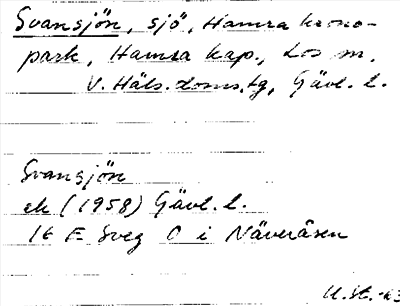 Svansjön, sjö, Hamra krono-
park, Hamra kap., Los sn.
V. Häls. doms.tg, Gävl. l.
Svansjön
ek (1958) Gävl. l.
16 E Sveg O i Näveråsen
U. St. -63